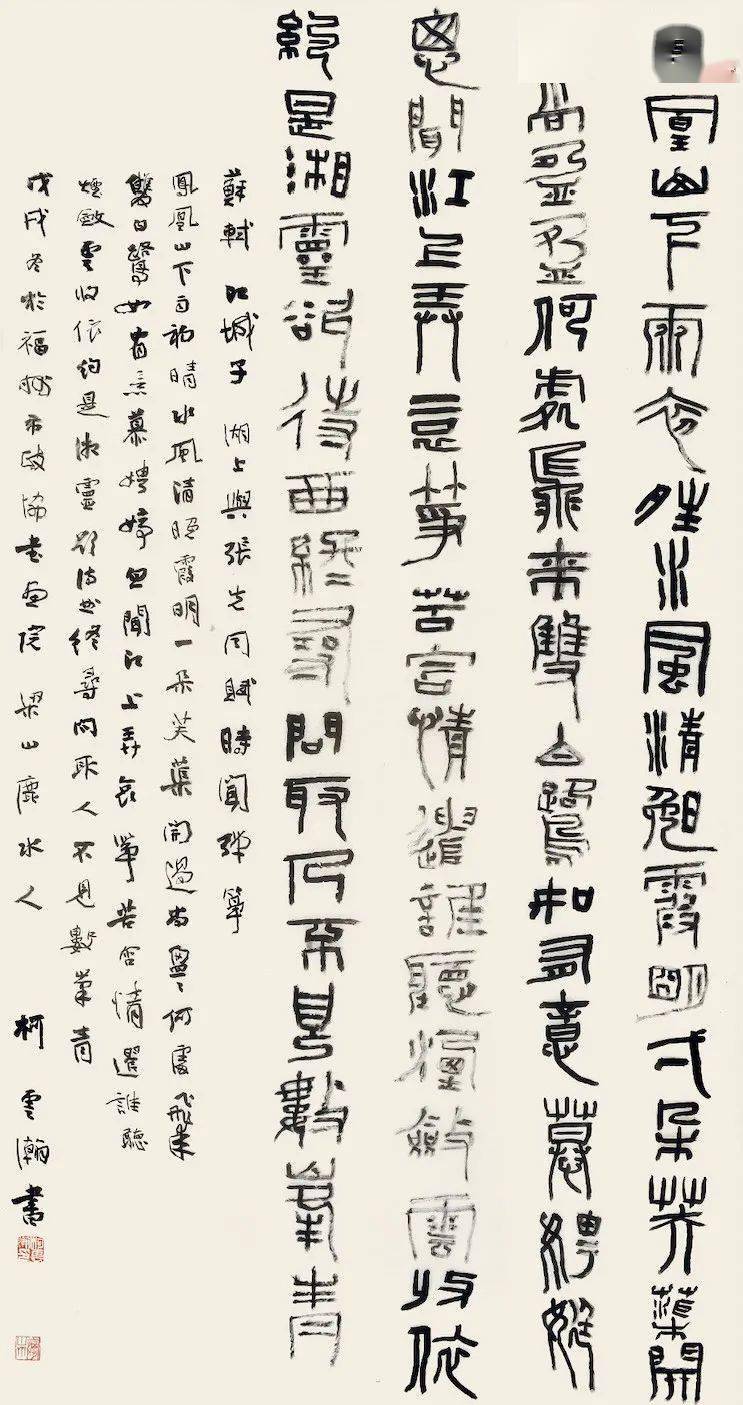 凰山下雨初晴水風清晚霞明一朵芙蕖開
尚盈盈何處飛來雙白鷺如有意慕娉婷
忽聞江上弄哀箏苦含情遣誰聽煙斂雲收依
約是湘靈欲待曲終尋問取人不見數峯青
蘇軾 江城子 湖上與張先同賦時聞彈箏
鳳凰山下雨初晴水風清晚霞明一朵芙蕖開過尚盈〻何處飛來
雙白鷺如有意慕娉婷忽聞江上弄哀箏苦含情遣誰聽
煙斂雲收依約是湘靈欲待曲終尋問取人不見數峯青
戊戌冬於福州市政協書畫院 梁山鹿水人 柯雲瀚書